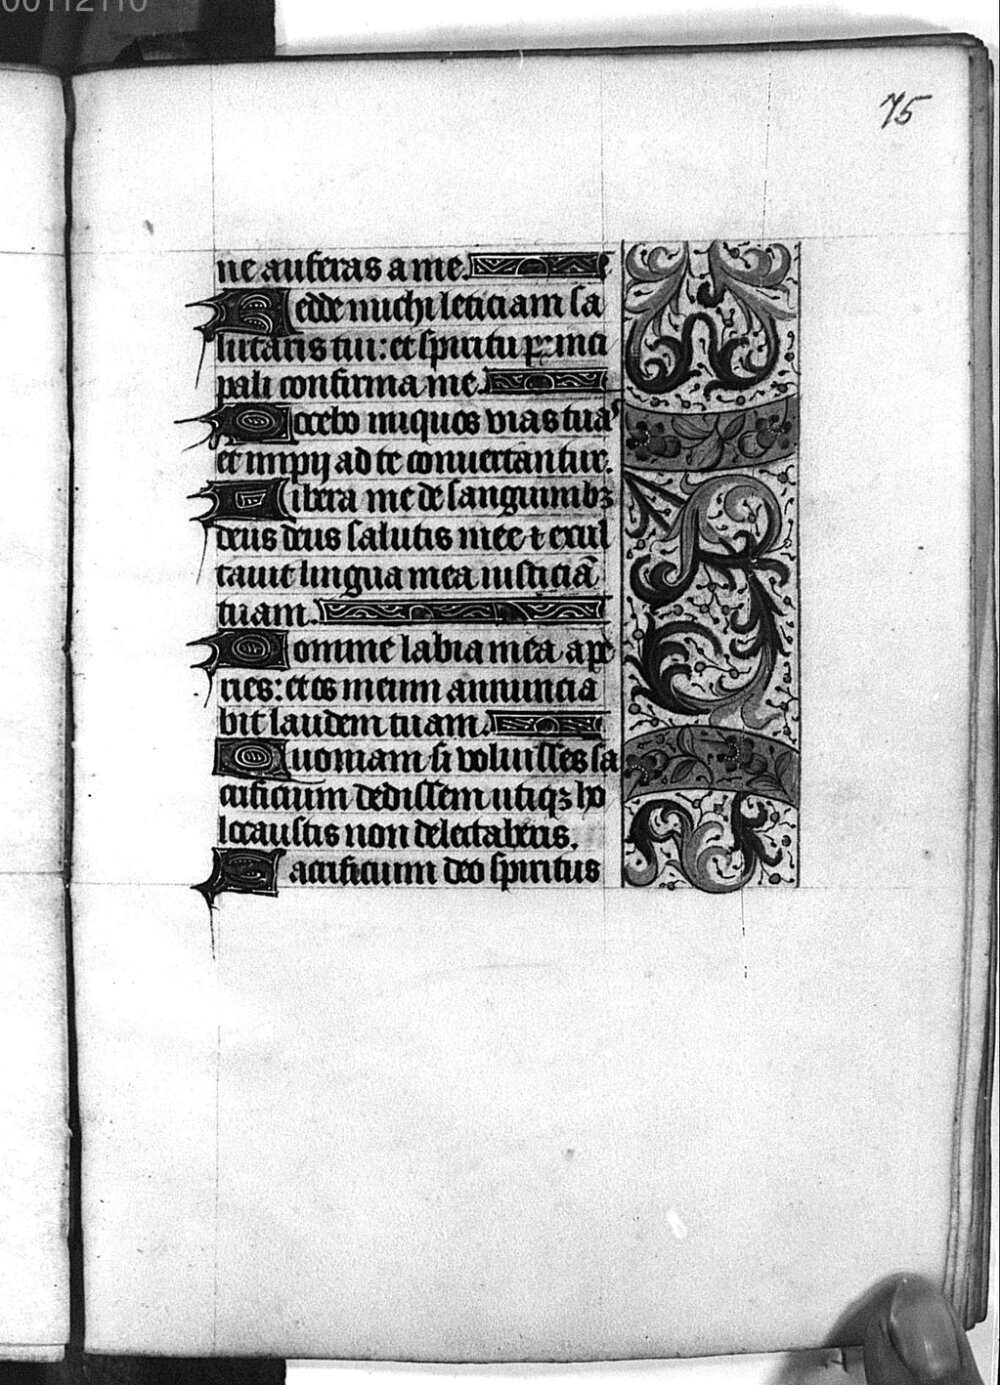 00112110
75
ne auferas a me.
Redde michi leticiam sa
lutaris tui: et spiritu princi
pali confirma me.
Docebo iniquos vias tuas
et impij ad te conuertantur.
Libera me de sanguinibꝫ
deus deus salutis mee ⁊ exul
tauit lingua mea iusticiã
tuam.
Domine labia mea ape
ries: et os meum annuncia
bit laudem tuam.
Quoniam si voluisses sa
crificium dedissem utiqꝫ ho
locaustis non delectaberis.
Sacrificium deo spiritus